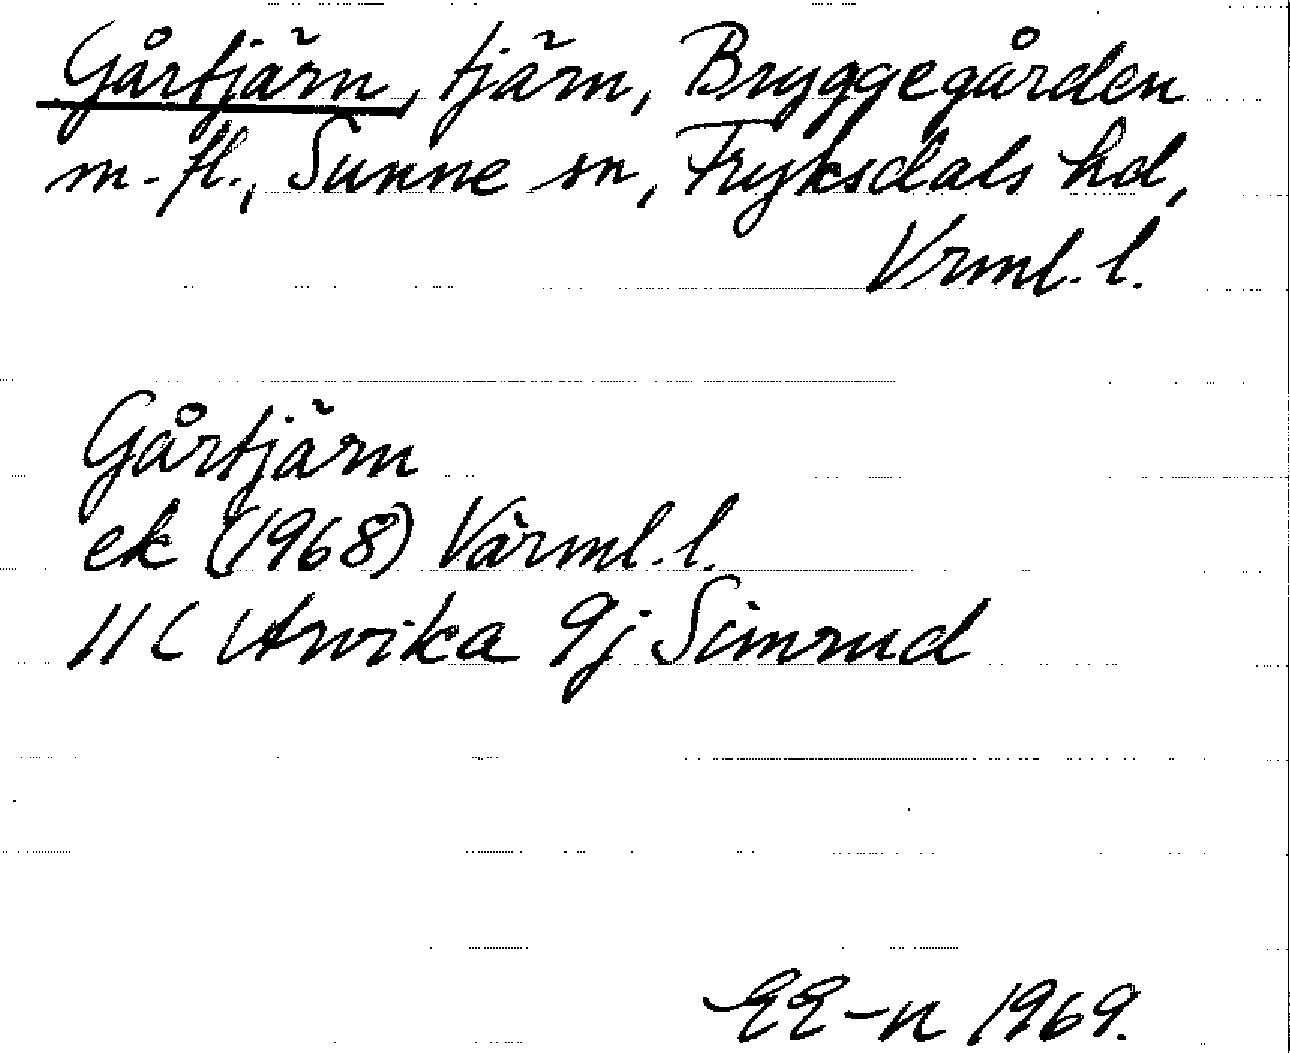 Gårtjärn, tjärn, Bryggegården
m.fl., Sunne sn, Fryksdals hd,
Vrml. l.
Gårtjärn
ek (1968) Värml. l.
11 C Arvika 9j Simrud
EE-n 1969.